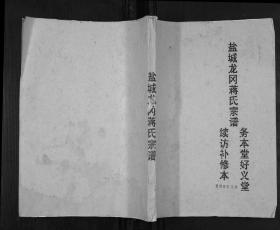 盐城龙冈蒋氏宗谱
盐城龙冈蒋氏宗谱
务本堂好义堂
续访补修本